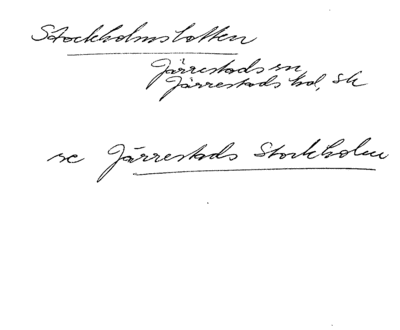 Stockholmstotten
Järrestads sn,
Järrestads hd, Sk
se Järrestads Stockholm